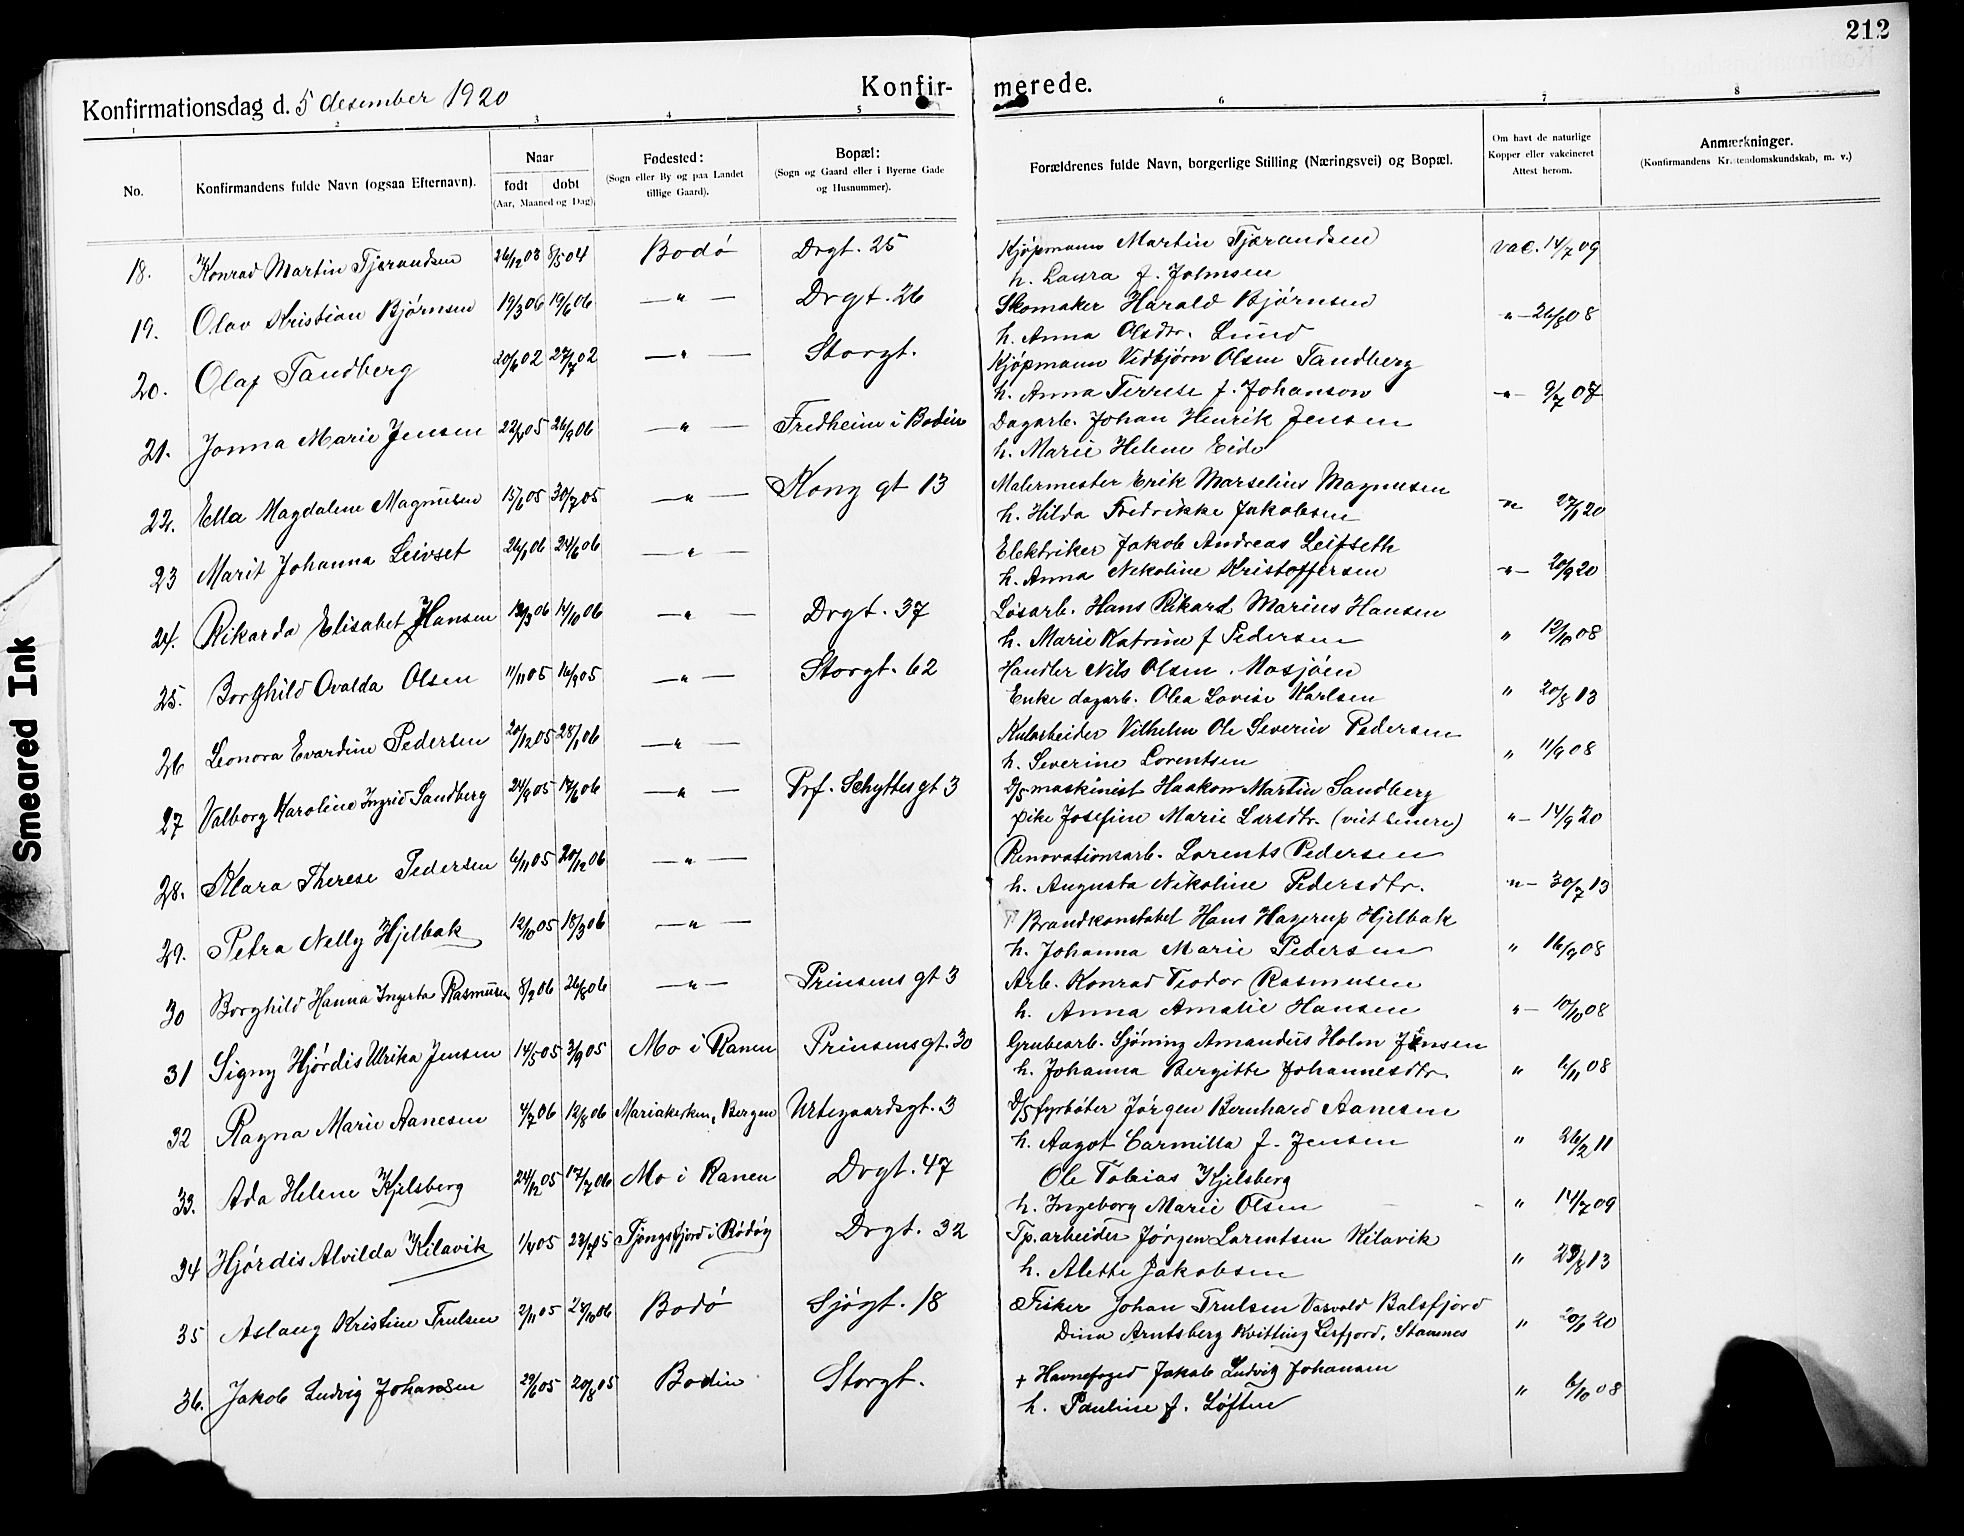 212
Konfirmationsdag d. 5 desember 1920
Konfir- merede.
1 2 3 4 5 6 7 8
No.
Konfirmandens fulde Navn (ogsaa Efternavn).
Naar
født døbt
(Aar, Maaned og Dag).
Fødested:
(Sogn eller By og paa Landet
tillige Gaard).
Bopæl:
(Sogn og Gaard eller i Byerne Gade
og Husnummer).
Forældrenes fulde Navn, borgerlige Stilling (Næringsvei) og Bopæl.
Om havt de naturlige
Kopper eller vakcineret
Attest herom.
Anmærkninger.
(Konfirmandens Kristendomskundskab, m. v.)
18. Konrad Martin Tjærandsen 26/12 03 8/5 04 Bodø Drgt. 25 Kjøpmann Martin Tjærandsen vac. 14/7 09
h. Laura f. Johnsen
19. Olav Kristian Bjørnsen 19/3 06 19/6 06 —"— Drgt. 26 Skomaker Harald Bjørnsen "— 26/8 08
h. Anna Olsdtr. Lund
20. Olaf Tandberg 20/6 02 27/7 02 —"— Storgt. Kjøpmann Vidbjørn Olsen Tandberg
h. Anna Terrese f. Johanson —"— 9/7 07
21. Jonna Marie Jensen 22/4 05 26/9 06 —"— Fredheim i Bodin Dagarb. Johan Henrik Jensen
h. Marie Helene Eide
22. Ella Magdalene Magnusen 15/6 05 30/7 05 —"— Kong gt 13 Malermester Erik Marselius Magnusen
h. Hilda Fredrikke Jakobsen —"— 27/1 20
23 Marit Johanna Leivset 26/1 06 24/6 06 —"— Elektriker Jakob Andreas Leifseth
h. Anna Nekoline Kristoffersen —"— 20/9 20
24. Rikarda Elisabet Hansen 13/3 06 14/10 06 —"— Drgt. 37 Løsarb. Hans Rikard Marius Hansen
h. Marie Katrine f Pedersen " 12/10 08
25. Borghild Ovalda Olsen 11/11 05 16/9 05 —"— Storgt. 62 Handler Nils Olsen. Mosjøen
Enke dagarb. Olea Lovise Karlsen " 20/8 13
26 Leonora Evardine Pedersen 20/12 05 28/1 06 —"— Kularbeider Vilhelm Ole Severin Pedersen
h. Severine Lorentsen " 11/9 08
27 Valborg Karoline Ingrid Sandberg 24/9 05 17/6 06 —"— Prf. Schyttes gt 3 D/S maskinist Haakon Martin Sandberg
pike Josefine Marie Larsdtr. (viet senere) "— 14/9 20
28. Klara Therese Pedersen 6/11 05 20/12 06 —"— Renovationsarb. Lorents Pedersen
h. Augusta Nikoline Pedersdtr. —"— 30/7 13
29. Petra Nelly Hjelbak 12/10 05 18/3 06 —"— Brandkonstabel Hans Hagerup Hjelbak
h. Johanna Marie Pedersen " 16/9 08
30 Borghild Hanna Ingerta Rasmusen 8/2 06 26/8 06 —"— Prinsens gt 3 Arb. Konrad Teodor Rasmusen
h. Anna Amalie Hansen "— 10/10 08
31 Signy Hjørdis Ulrika Jensen 14/5 05 3/9 05 Mo i Ranen Prinsensgt. 30 Grubearb. Sjøning Amandus Holm Jensen
h. Johanna Bergitte Johannesdtr. " 6/11 08
32 Ragna Marie Aanesen 4/7 06 12/8 06 Mariakirken, Bergen Urtegaardsgt. 3 D/S fyrbøter Jørgen Bernhard Aanesen
h. Aagot Carmilla f. Jensen " 26/2 11
33. Ada Helene Kjelsberg 24/12 05 17/7 06 Mo i Ranen Drgt. 47 Ole Tobias Kjelsberg
h. Ingeborg Marie Olsen " 14/7 09
34 Hjørdis Alvilda Kilavik 1/4 05 23/7 05 Tjongsfjord i Rødøy Drgt. 32 Tp.arbeider Jørgen Lorentsen Kilavik
h. Alette Jakobsen " 23/8 13
35 Aslaug Kristine Trulsen 2/11 05 28/10 06 Bodø Sjøgt. 18 Fisker Johan Trulsen Vasvold Balsfjord
Dina Arntsberg Kvitting Leifjord, Stamnes " 20/1 20
36. Jakob Ludvig Johansen 29/6 05 20/8 05 Bodin Storgt. + Havnefoged Jakob Ludvig Johansen
h. Pauline f. Løften " 6/10 08
Smeared Ink